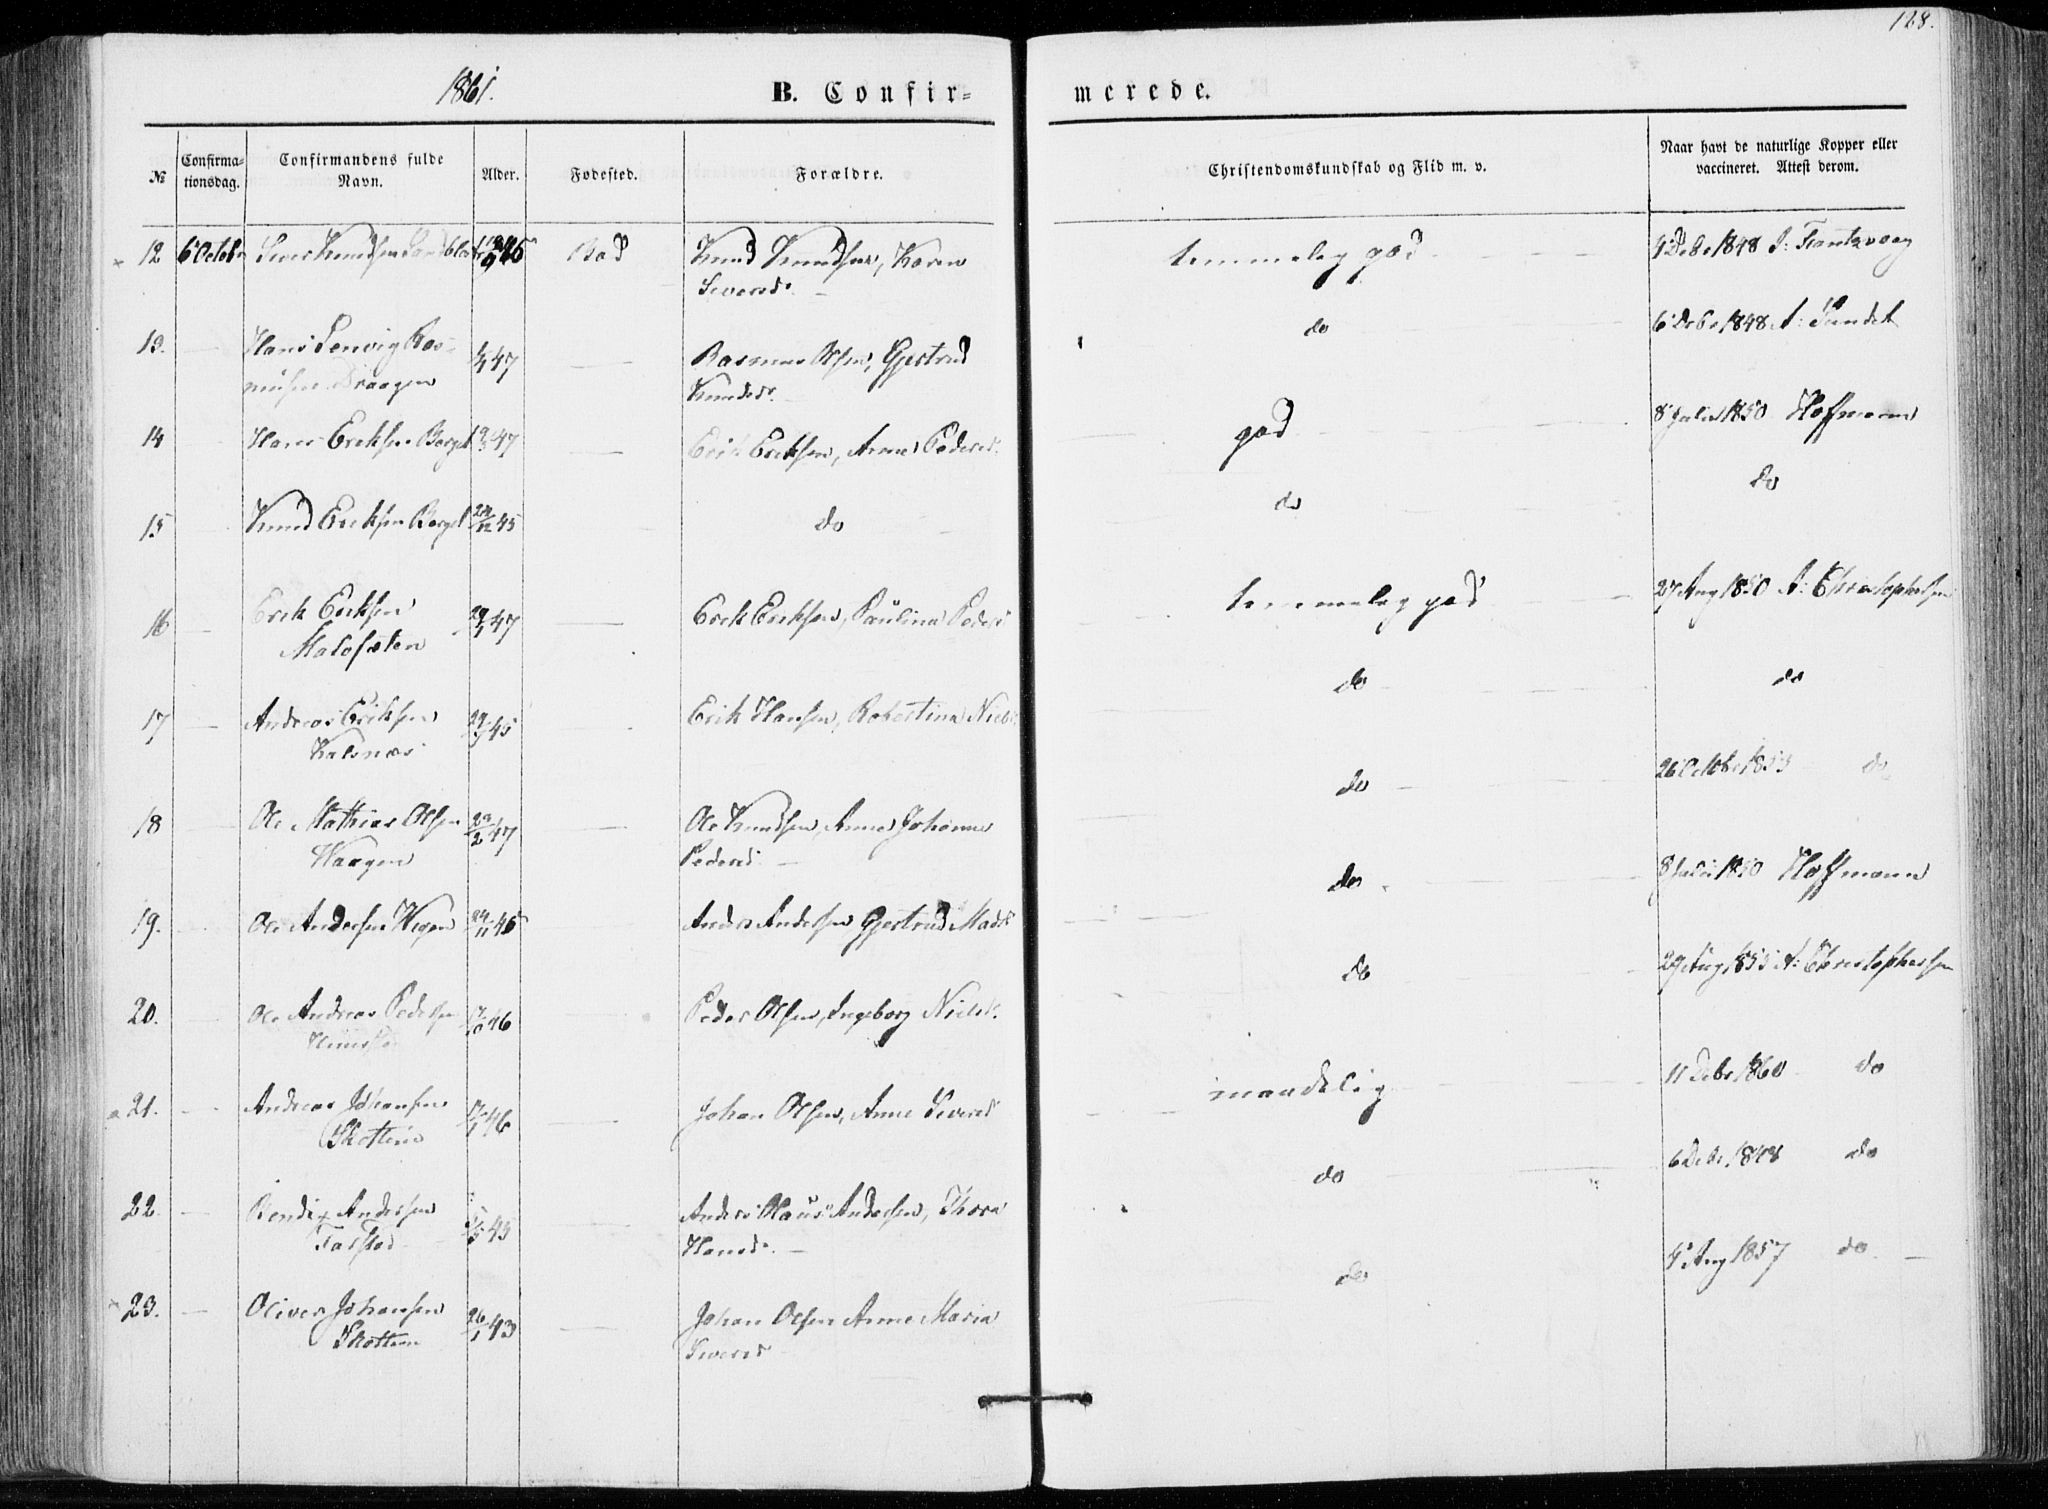 128.
1861.
B. Confir-
merede.
№
Confirma-
tionsdag.
Confirmandens fulde
Navn.
Alder.
Fødested.
Forældre.
Christendomskundskab og Flid m. v.
Naar havt de naturlige Kopper eller
vaccineret. Attest derom.
12 6 Octobr Siver Knudsen 46 Bod Knud Knudsen, Karen temmelig god 4 Debr 1848 J: Frantzvaag
Siversd.
13. Hans Lervig Ras- 47 Rasmus Olsen, Gjertrud do 6 Debr 1848 A: Sundet
musen Draagen Knudsd.
14 Hans Eriksen Berget 19/3 47 Erik Eriksen, Anne Pedersd. god 8 Juli 1850 Hoffmann
15 Knud Eriksen Berget 24/12 45 do do do
16 Erik Eriksen 29/1 47 Erik Eriksen, Paulina Pedersd temmelig god 27 Aug 1850 A: Christophersen
Malosæten
17 Andreas Eriksen 45 Erik Hansen, Robertina Niels do do
Kalsnæs
18 Ole Mathias Olsen 47 Ole Knudsen, Anne Johanna do 26 Octobr 1853 do
Waagen Pedersd.
19. Ole Andersen Wegen 24/11 45 Anders Andersen, Gjertrud Madsd do 8 Juli 1850 Hoffmann
20. Ole Andreas Pedersen 17/10 46 Peder Olsen, Ingeborg Nielsd. do 29 Aug 1855 A: Christophersen
21. Andreas Johansen 17/1 46 Johan Olsen, Anne Siversd maadelig 11 Debr 1860 do
Skottem
22. Bendix Andersen 45 Anders Claus Andersen, Thora do 6 Debr. 1848 do
Farstad Hansd.
23. Oliver Johansen 26/1 43 Johan Olsen Anne Maria do 4 Aug 1857 do
Skottem Siversd